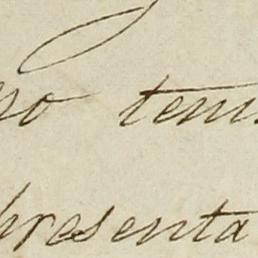 po tem
presenta